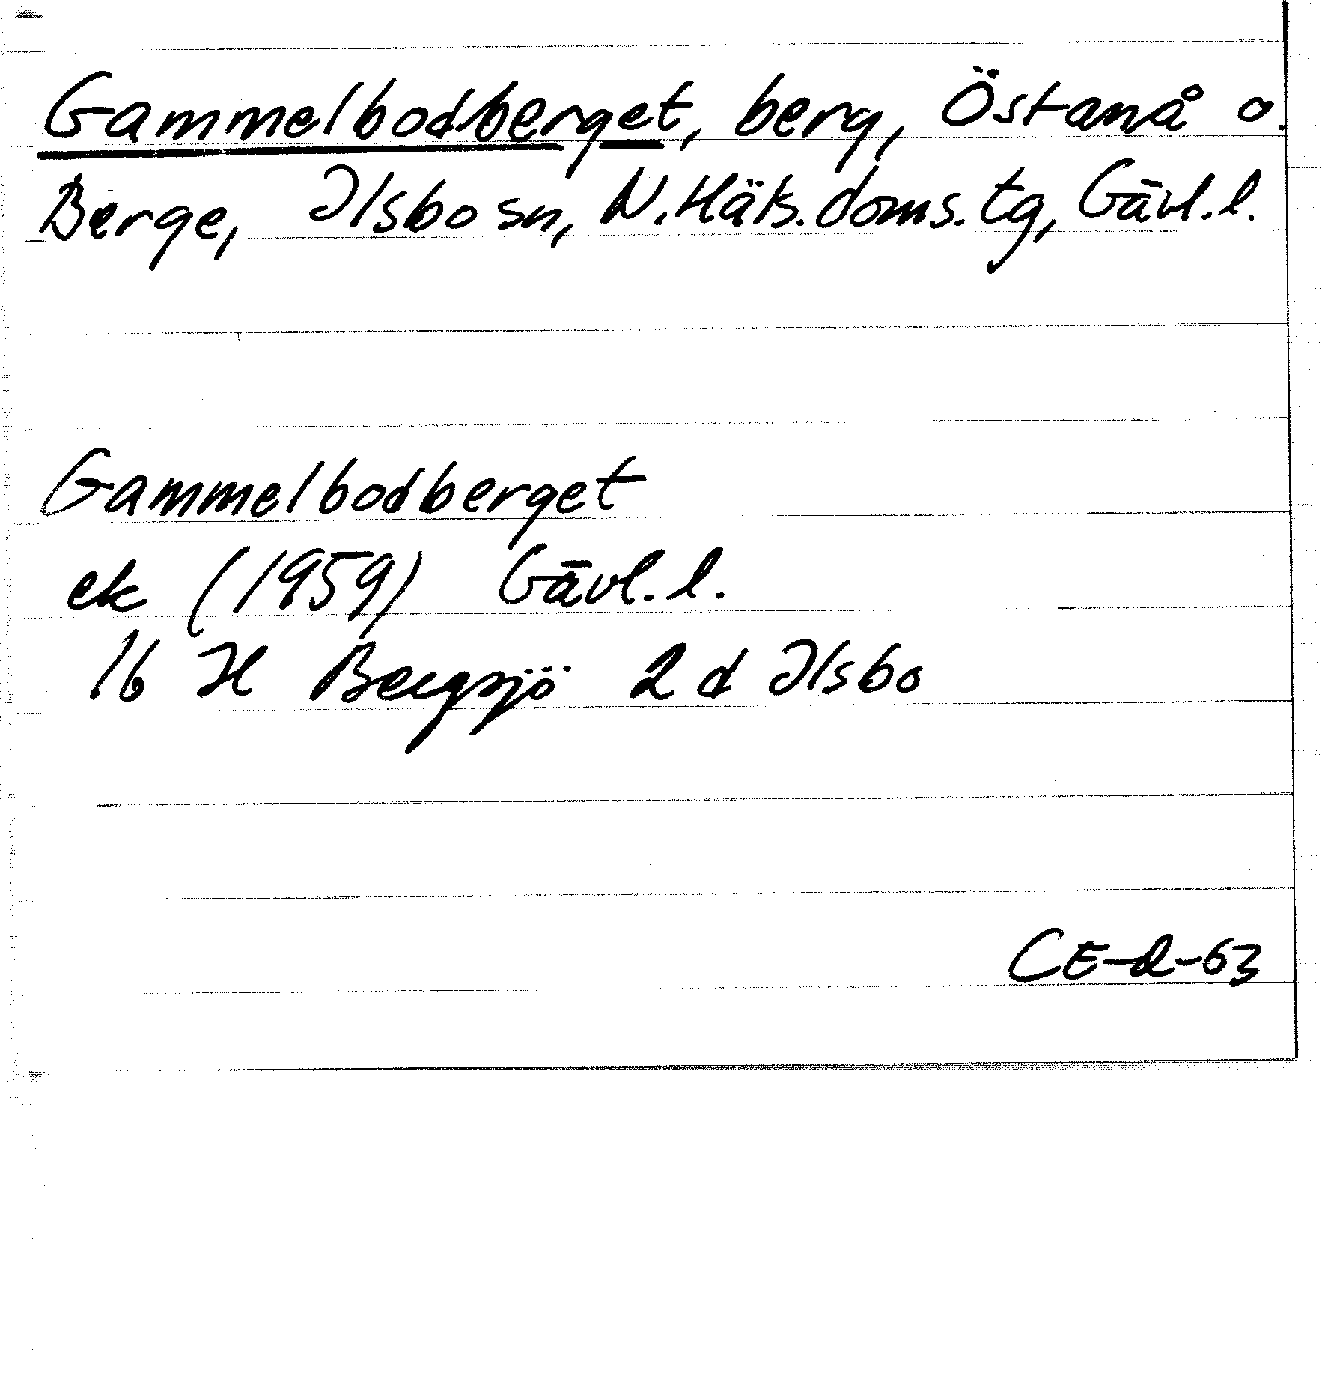 Gammelbodberget, berg, Östanå o.
Berge, Ilsbo sn, N. Häls. doms. tg, Gävl. l.
Gammelbodberget
ek (1959) Gävl. l.
16 H Bergsjö 2 d Ilsbo
CE-d-63